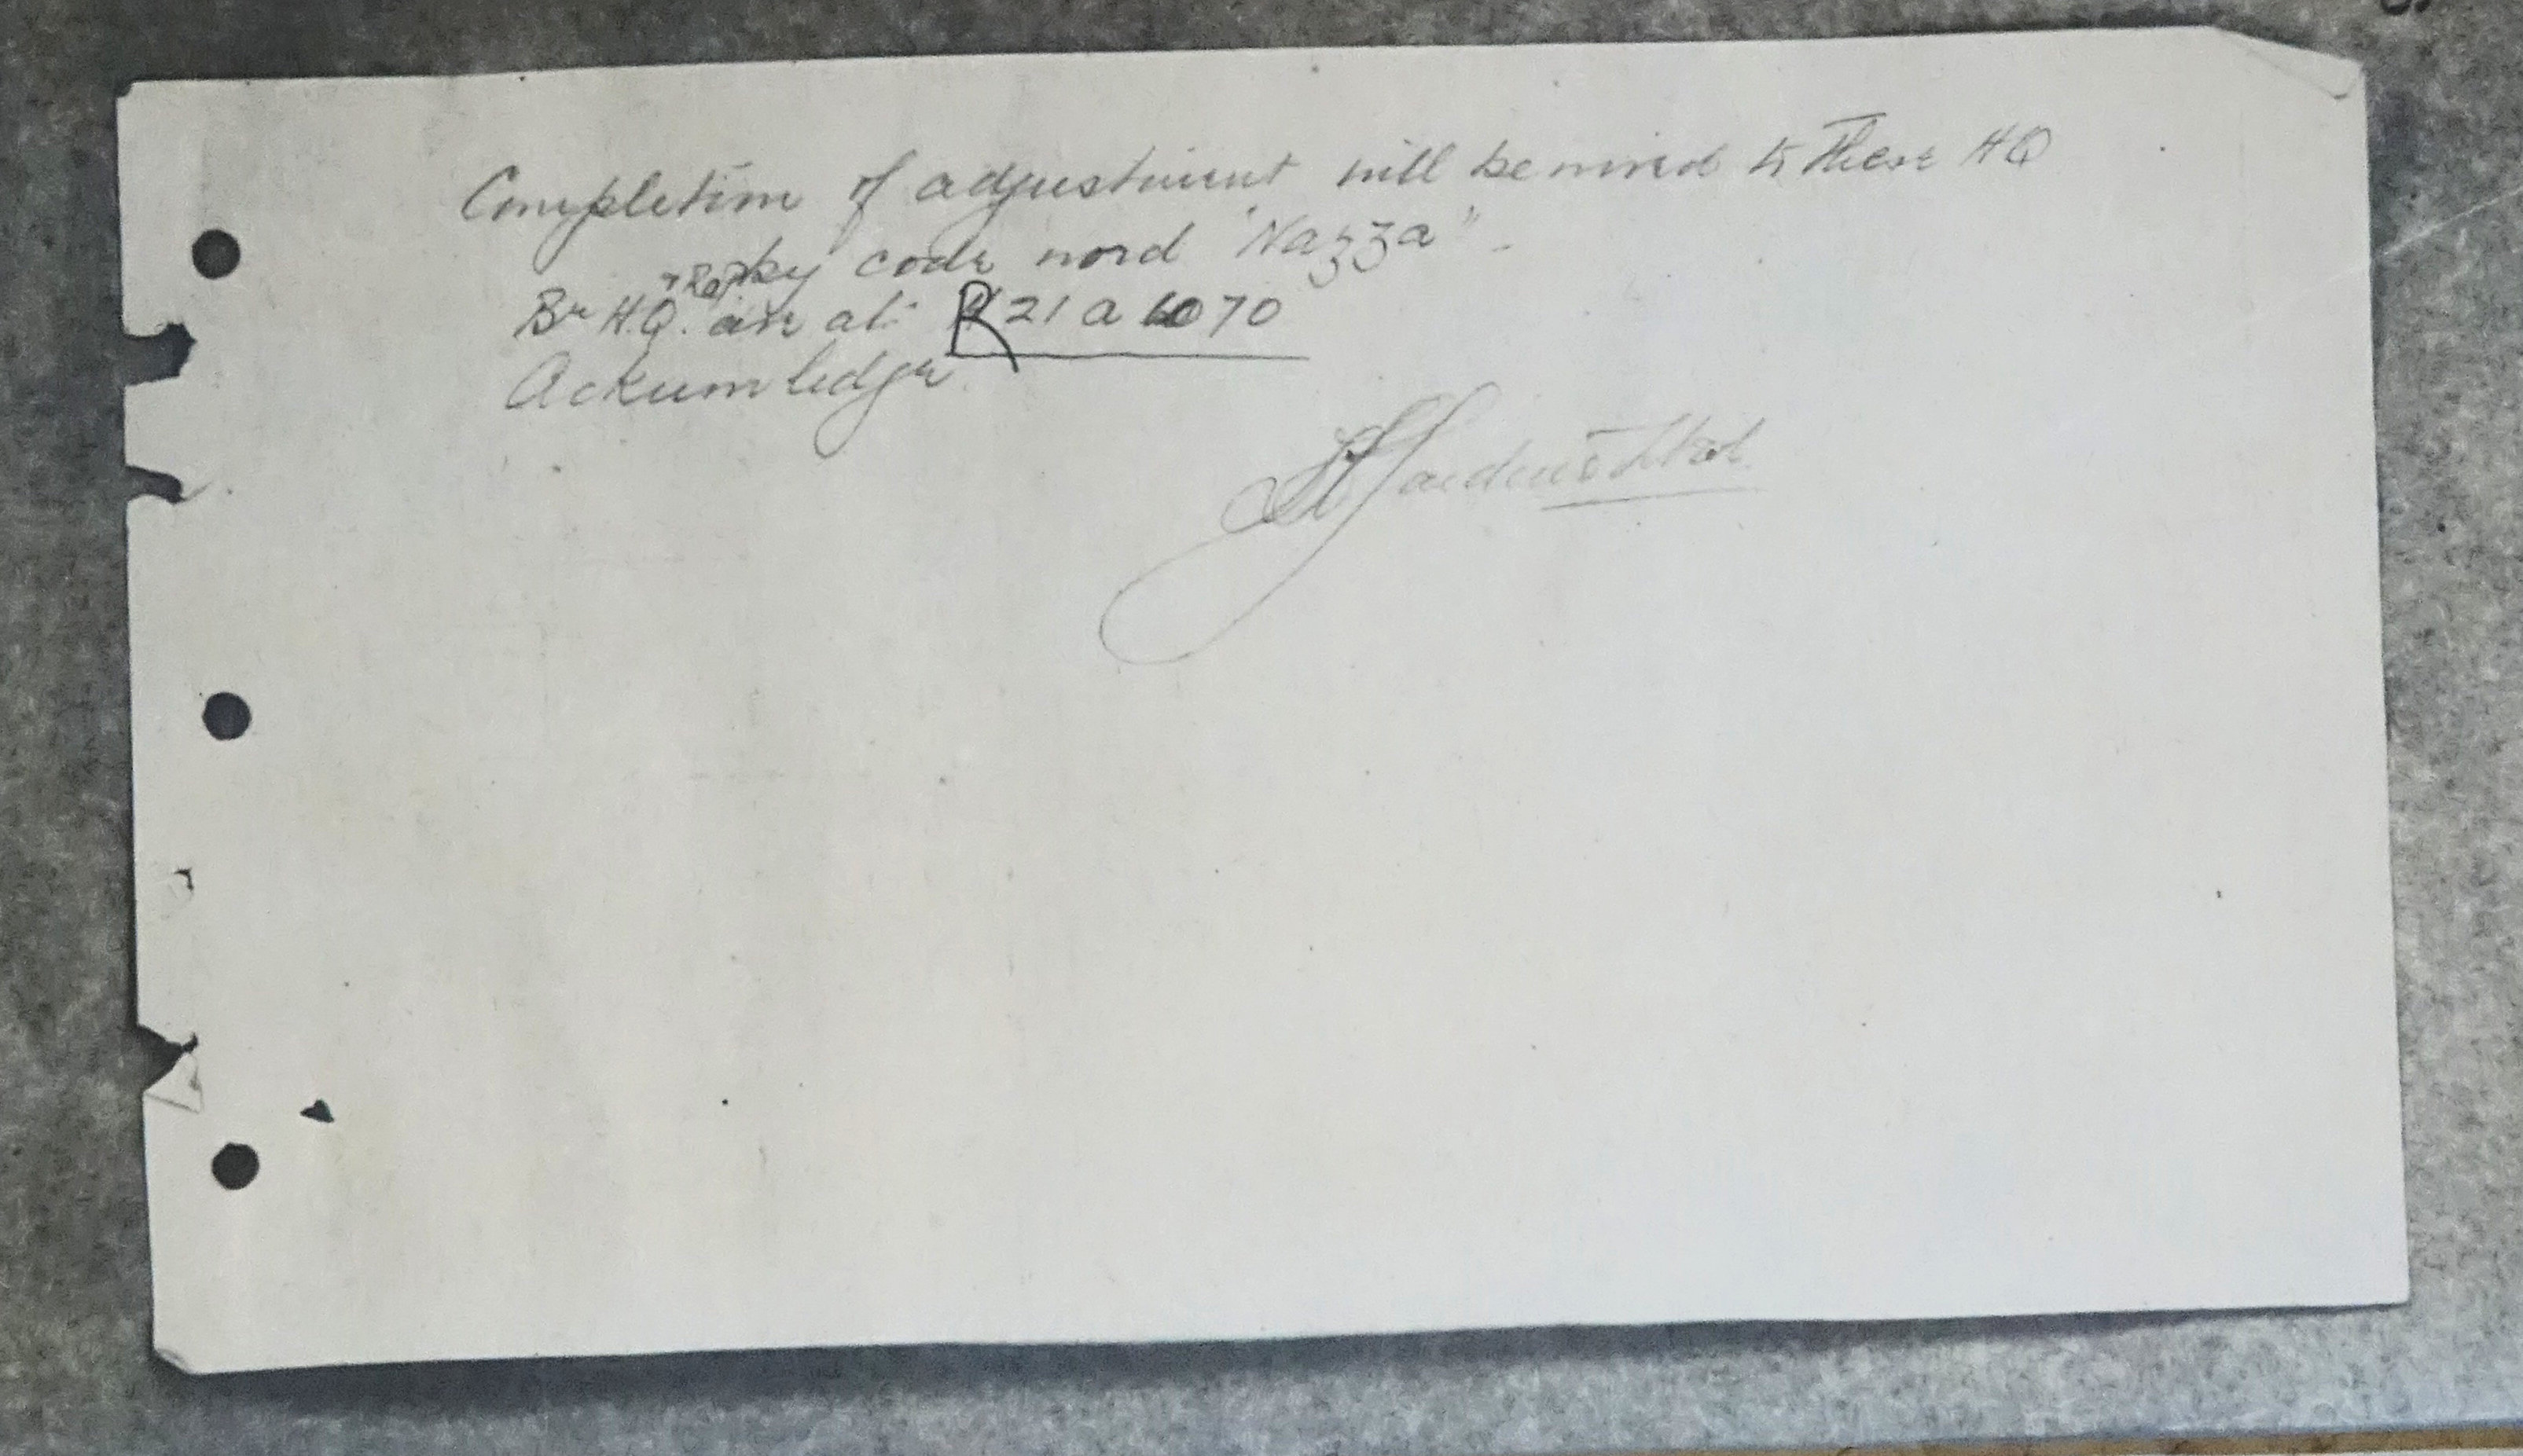 Completion of adjustment will be wired to these HQ
by code word "Nazza".
Bn H.Q. & RAP are at R 21 a 60 70
Acknowledge.